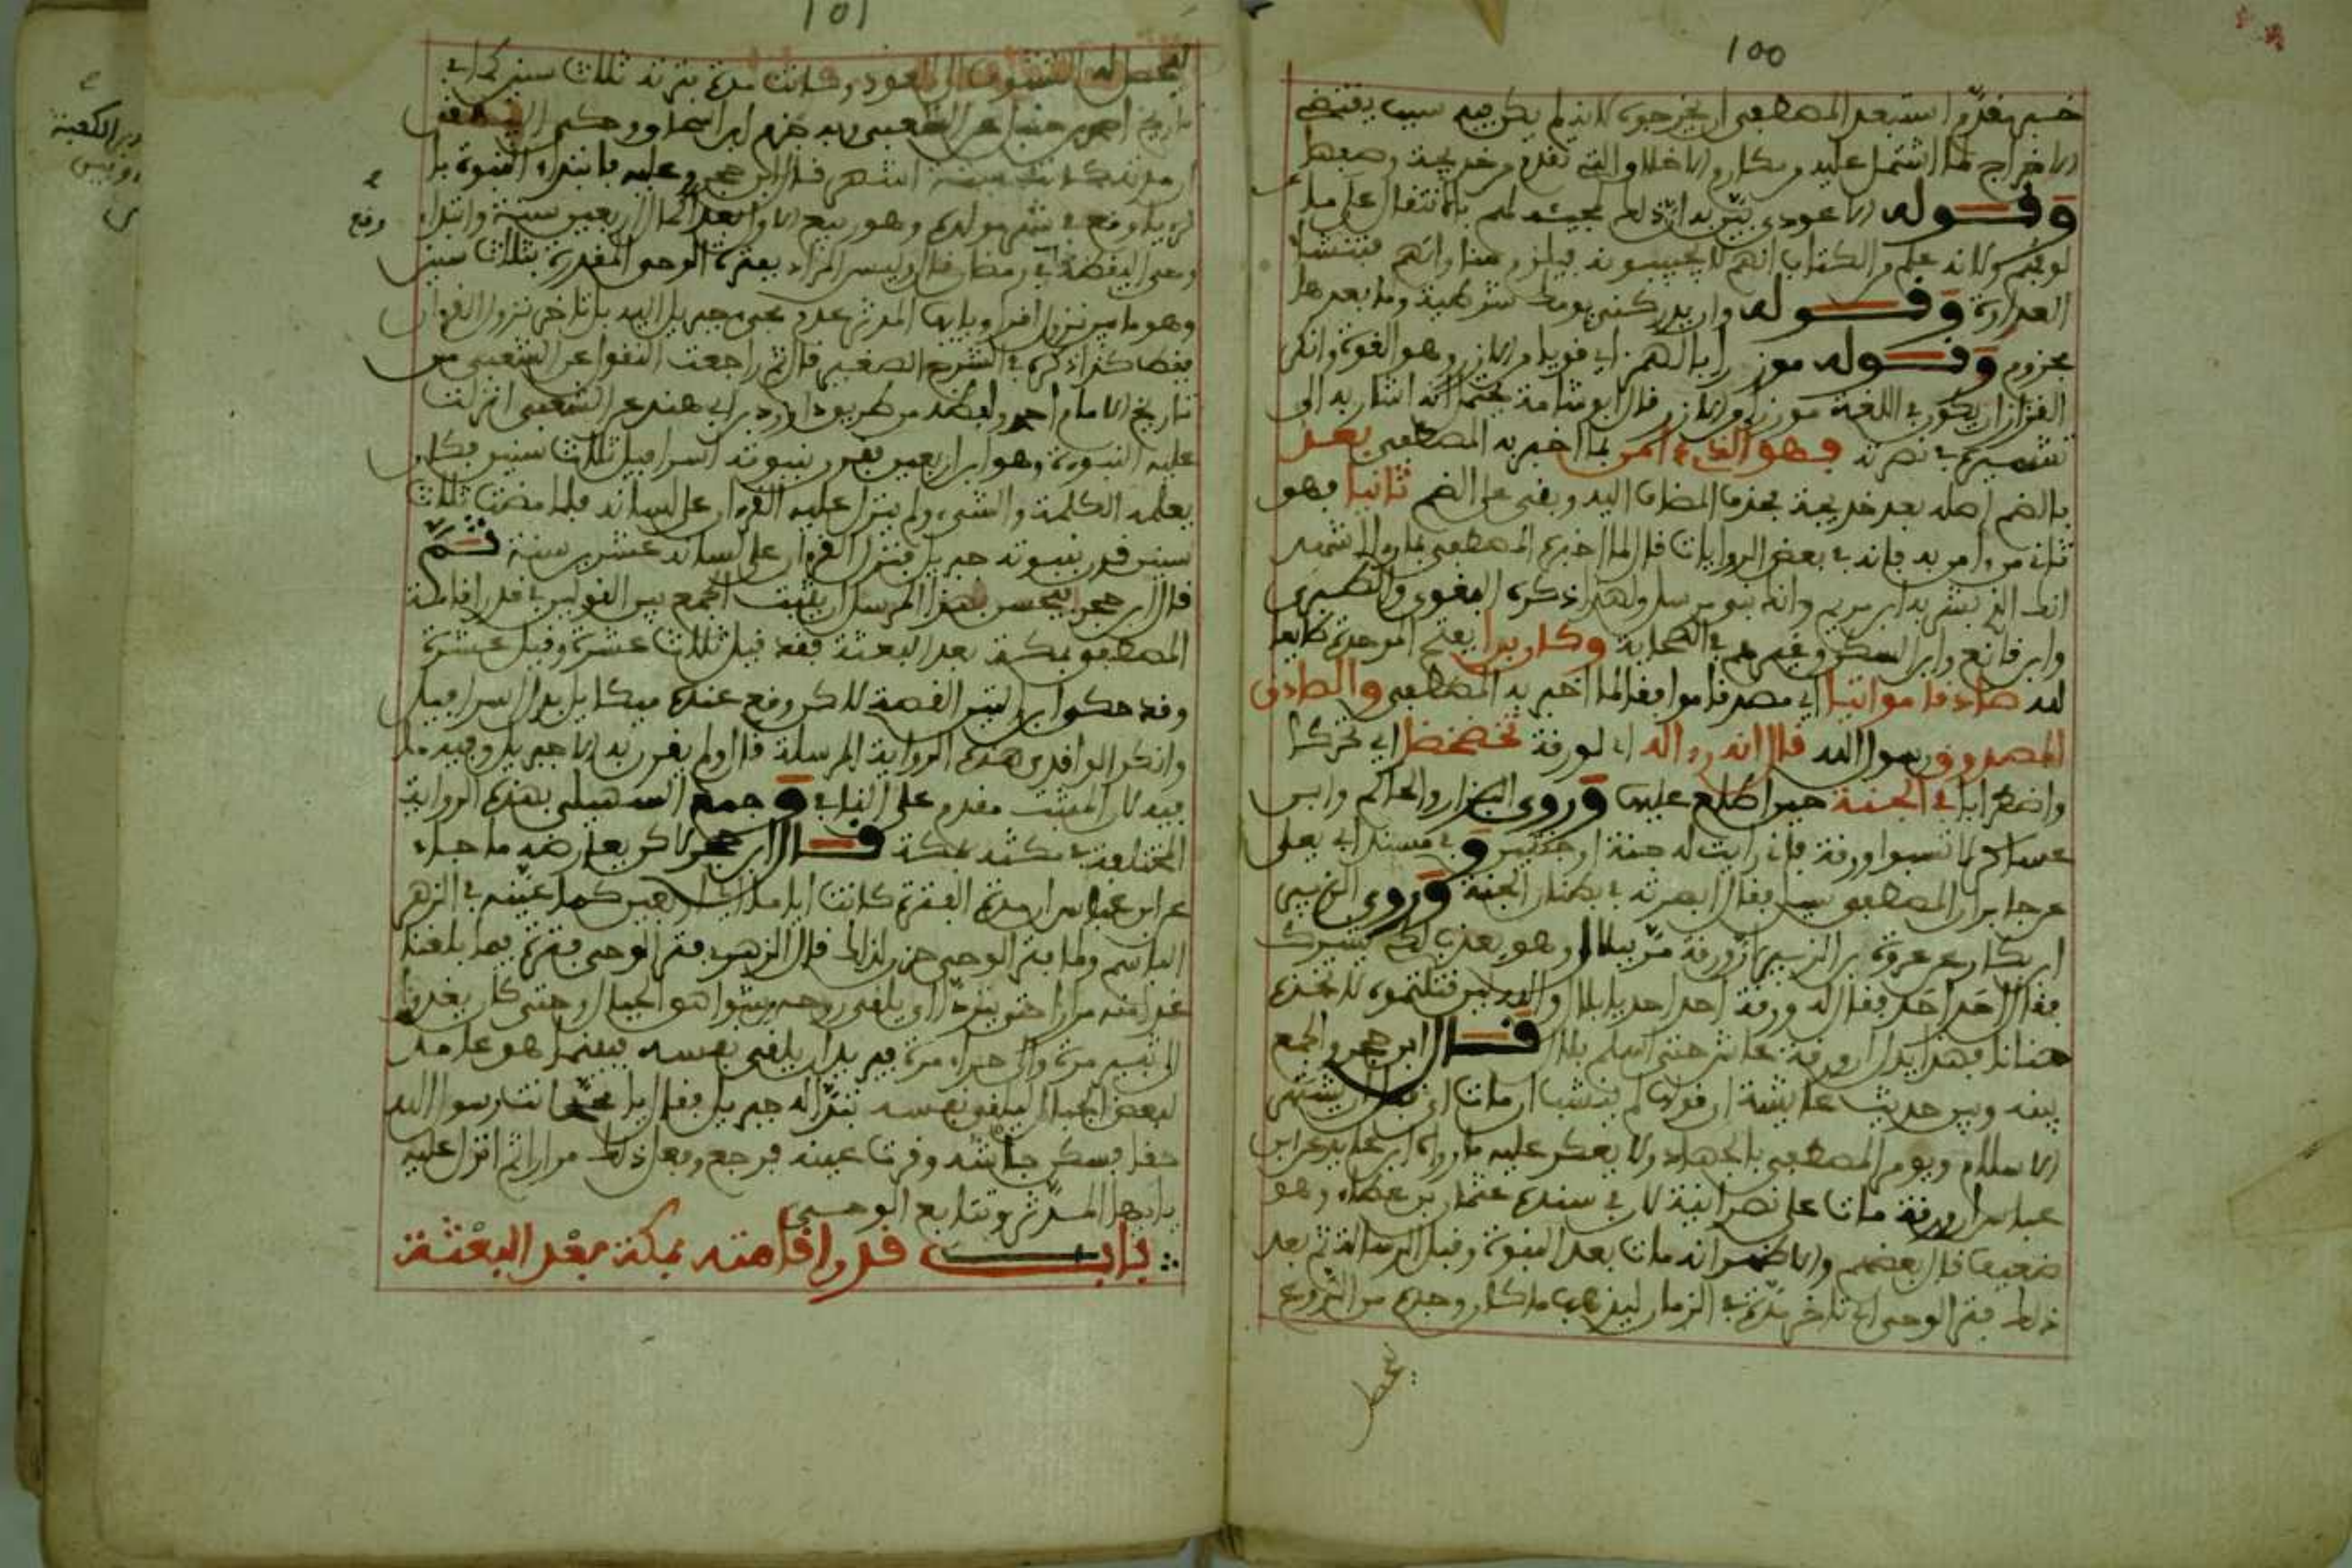 100
خبر مقدم استبعد المصطفى ان يخرجوه لانه لم يكن فيه سبب يقتضي
الاخراج لما اشتمل عليه من مكارم الاخلاق التي تقدم من خديجة وصفها
وقوله الا عودي بين به ان ذلك لمجيئه لهم بالانتقال عن ملة
العداوة وقوله وان يدركني يومك شرطية وما بعدها
مجزوم وقوله موزرا بالهمز اي قويا من الازر وهو القوة وانكر
القزاز ان يكون في اللغة موزر من الازر قال ابو شامة يحتمل انه اشار به الى
تشميره في نصرته فهو الذي امن بما اخبر به المصطفى بعد
بالضم اصله بعد خديجة بحذف المضاف اليه وبقي على الضم ثانيا فهو
ثاني من امن به فانه في بعض الروايات قال لما اخبره المصطفى بما راه اشهد
انك الذي بشر به ابن مريم وانك نبي مرسل ولهذا ذكره البغوي والطبري
وابن قانع وابن السكن وغيرهم في الصحابة وكان برا بفتح الموحدة طايعا
لله صادقا مواتيا اي مصدقا موافقا لما اخبر به المصطفى والصادق
المصدوق رسول الله قال انه راى له اي لورقة تخضخضا اي تحركا
واضطرابا في الجنة حين اطلع عليها وروى البزار والحاكم وابن
عساكر لا تسبوا ورقة فاني رايت له جنة او جنتين وفي مسند ابي يعلى
عن جابر ان المصطفى سيل فقال ابصرته في بطنان الجنة وروى الزبير
ابن بكار عن عروة بن الزبير ان ورقة مر ببلال وهو يعذب لكي يشرك
فقال احد احد فقال له ورقة احد احد يا بلال والله لين قتلتموه لاتخذنه
حنانا فهذا يدل ان ورقة عاش حتى اسلم بلال قال ابن حجر والجمع
بينه وبين حديث عايشة ان قولها لم ينشب ان مات اي قبل ان يشتهر
الاسلام ويومر المصطفى بالجهاد ولا يعكر عليه ما رواه ابن عايد عن ابن
عباس ان ورقة مات على نصرانية لان في سنده عثمان بن عطاء وهو
ضعيف قال بعضهم والاظهر انه مات بعد النبوة وقبل الرسالة ثم بعد
ذلك فتر الوحي اي تاخر مدة في الزمان ليذهب ما كان وجده من الروع
يحصل
101
ليحصل له التشوف الى العود وكانت مدة فترته ثلاث سنين كما في
تاريخ احمد بن حنبل عن الشعبي وبه جزم ابن اسحاق وحكى البيهقي
ان مدته كانت ستة اشهر قال ابن حجر وعليه فابتداء النبوة بالـ
رويا وقع في شهر مولده وهو ربيع الاول بعد اكمال اربعين سنة وابتداء
وقع
وحي اليقظة في رمضان قال وليس المراد بفترة الوحي المقدرة بثلاث سنين
وهو ما بين نزول اقرا ويا ايها المدثر عدم مجيء جبريل اليه بل تاخر نزول القران
فقط كذا ذكره في الشرح الصغير قال ثم راجعت النقول عن الشعبي من
تاريخ الامام احمد ولفظه من طريق داود بن ابي هند عن الشعبي انزلت
عليه النبوة وهو ابن اربعين فقرن بنبوته اسرافيل ثلاث سنين فكان
يعلمه الكلمة والشيء ولم ينزل عليه القران على لسانه فلما مضت ثلاث
سنين قرن بنبوته جبريل فنزل القران على لسانه عشرين سنة ثم
قال ابن حجر فيحسن بهذا المرسل ان ثبت الجمع بين القولين في قدر اقامة
المصطفى بمكة بعد البعثة فقد قيل ثلاث عشرة وقيل عشرة
وقد حكى ابن التين القصة لاكن وقع عنده ميكاييل بدل اسرافيل
وانكر الواقدي هذه الرواية المرسلة قال ولم يقرن به الا جبريل وفيه ما
فيه لان المثبت مقدم على النافي وجمع السهيلي بهذه الرواية
المختلف في مكثه بمكة قال ابن حجر لاكن يعارضه ما جاء
عن ابن عباس ان مدة الفترة كانت اياما كما عينه في الزهر
الباسم ولما فتر الوحي حزن لذلك قال الزهري فتر الوحي فترة فيما بلغنا
غدا منه مرارا حتى يتردى اي يلقي روحه من شواهق الجبال وحتى كان يغدوا
الى ثبير مرة والى حراء مرة يريد ان يلقي نفسه فبينما هو عامد
لبعض الجبال ليلقي نفسه تبدا له جبريل فقال يا محمد انت رسول الله
حقا فسكن جاشه وقرت عينه فرجع وفعل ذلك مرارا ثم انزل عليه
يا ايها المدثر وتتابع الوحي
باب قدر اقامته بمكة بعد البعثة